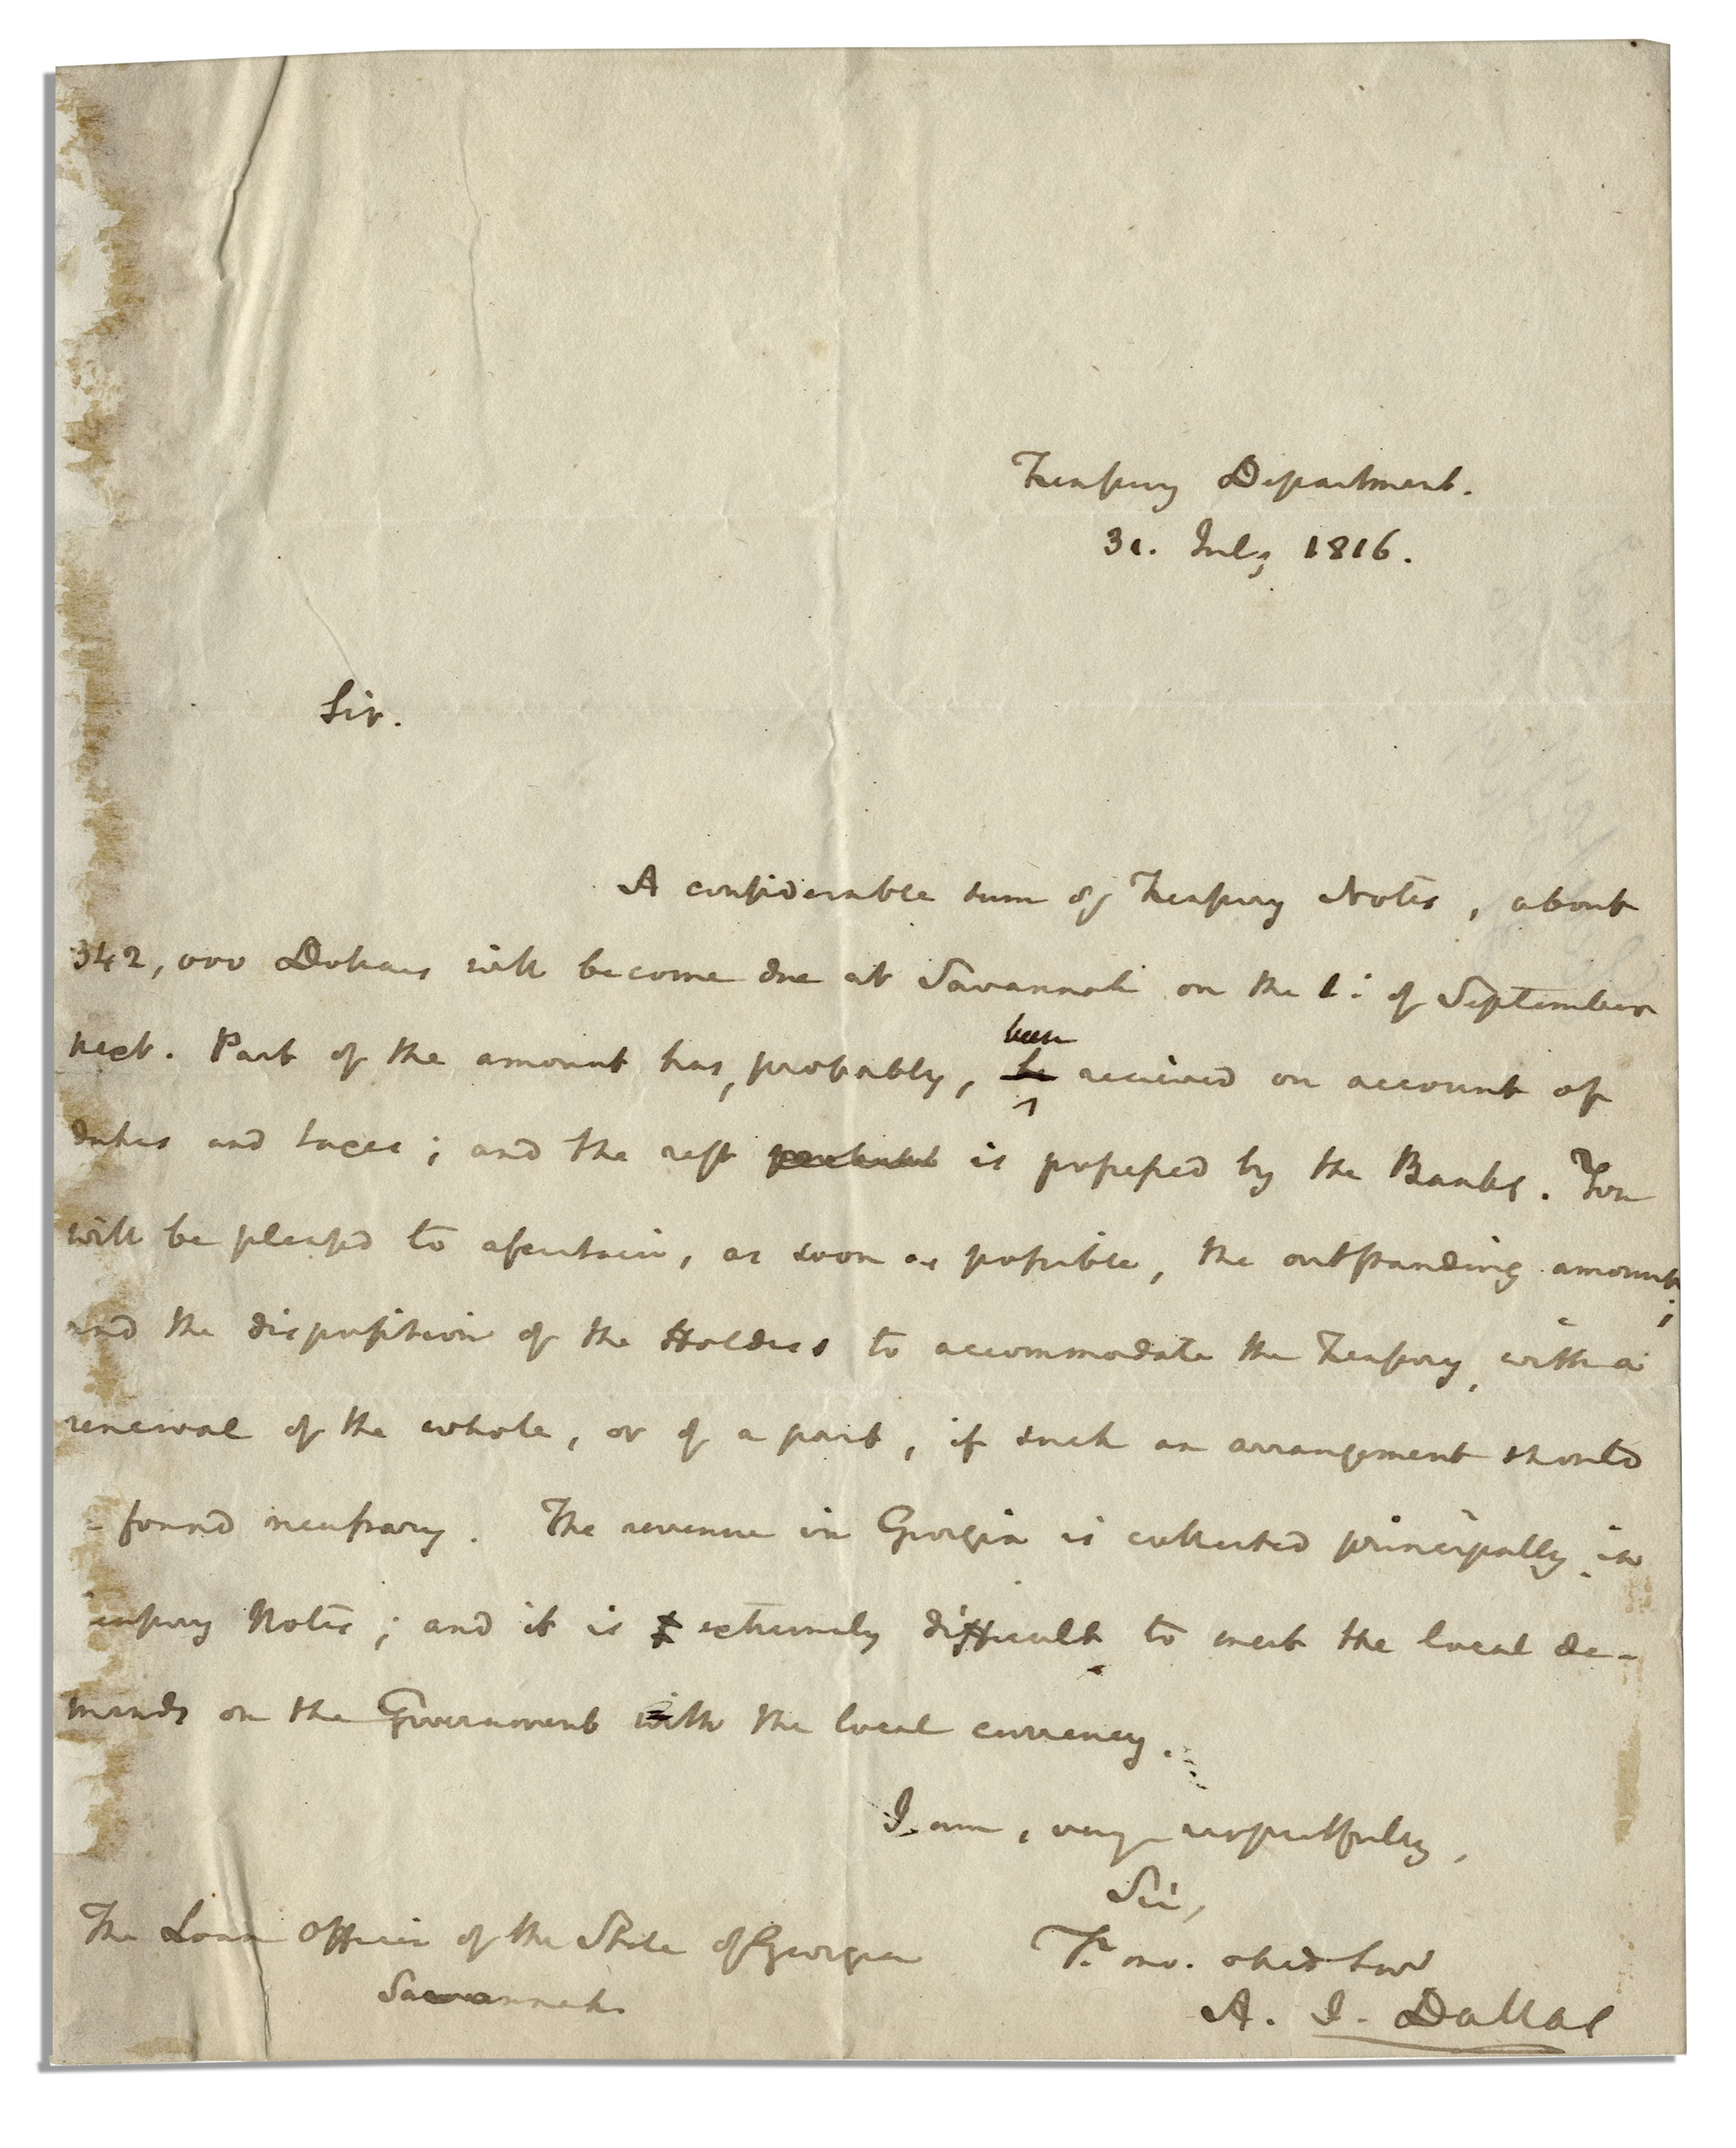 Treasury Department.
31. July 1816.
Sir.
A considerable sum of Treasury Notes, about
342,000 Dollars will become due at Savannah on the 1: of September
next. Part of the amount has, probably, been received on account of
duties and taxes; and the rest is possessed by the Banks. You
will be pleased to ascertain, as soon as possible, the outstanding amount;
and the disposition of the Holders to accommodate the Treasury, with a
renewal of the whole, or of a part, if such an arrangement should
found necessary. The revenue in Georgia is collected principally in
easury Notes; and it is extremely difficult to meet the local de-
mands on the Government with the local currency.
I am, very respectfully,
Sir,
Yr. mo. obed Serv
A. J. Dallas
The Loan Officer of the State of Georgia
Savannah